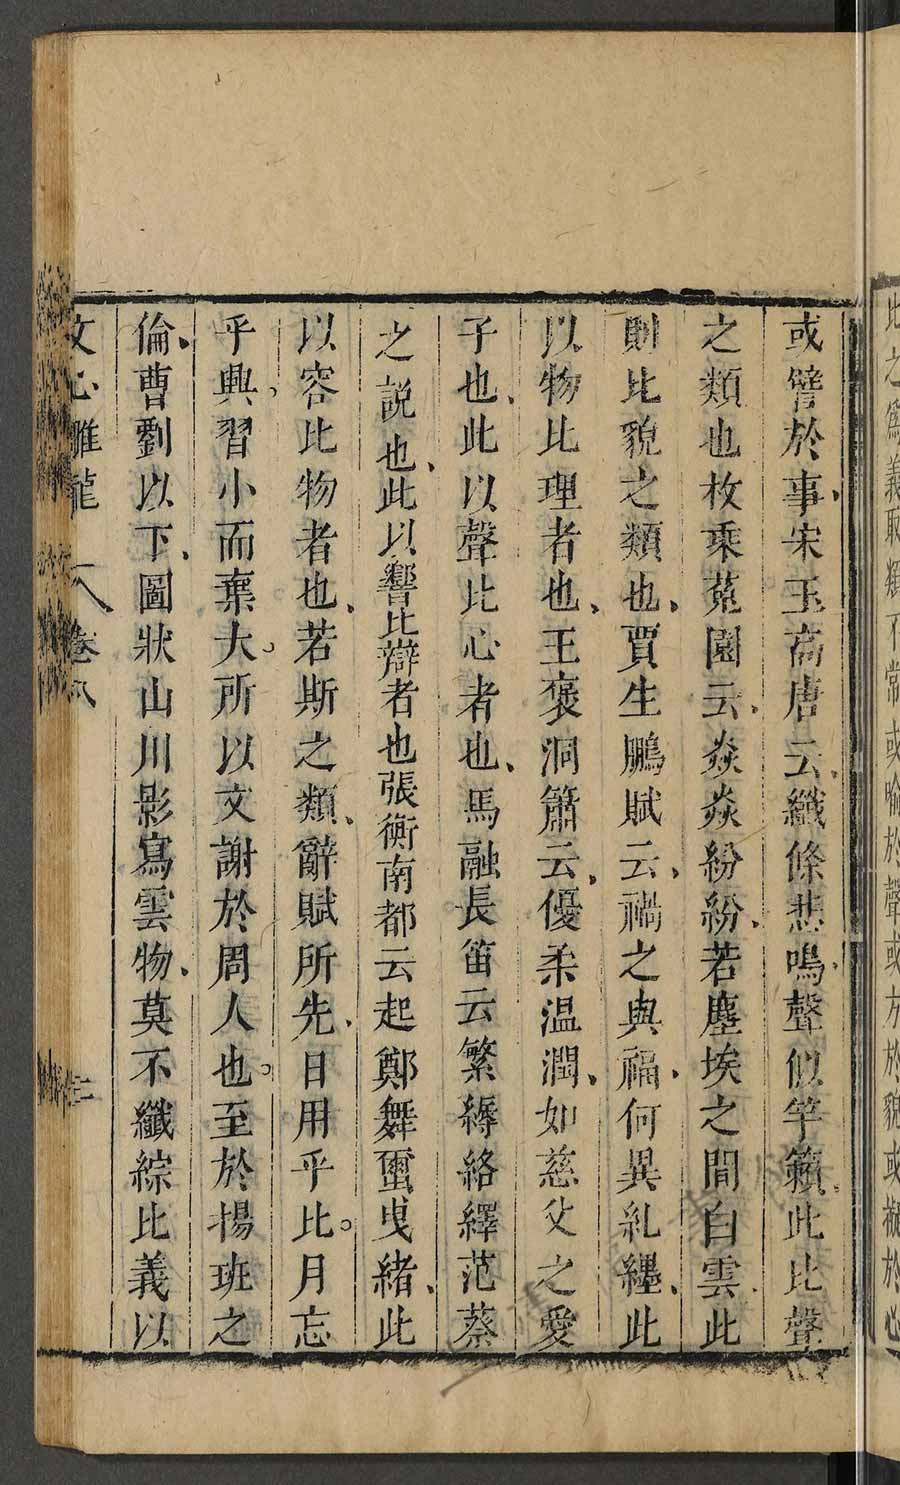 比之爲義取類不常或喻於聲或方於貌或擬於心
或譬於事宋玉高唐云纖條悲鳴聲似竽籟此比聲
之類也枚乘菟園云焱焱紛紛若塵埃之間白雲此
則比貌之類也賈生鵬賦云禍之與福何異糺纆此
以物比理者也王褒洞簫云優柔温潤如慈父之愛
子也此以聲比心者也馬融長笛云繁縟絡繹范蔡
之說也此以響比辯者也張衡南都云起鄭舞璽曵緒此
以容比物者也若斯之類辭賦所先日用乎比月忘
乎興習小而棄大所以文謝於周人也至於揚班之
倫曹劉以下圖狀山川影寫雲物莫不纖綜比義以
文心雕龍 卷八 三